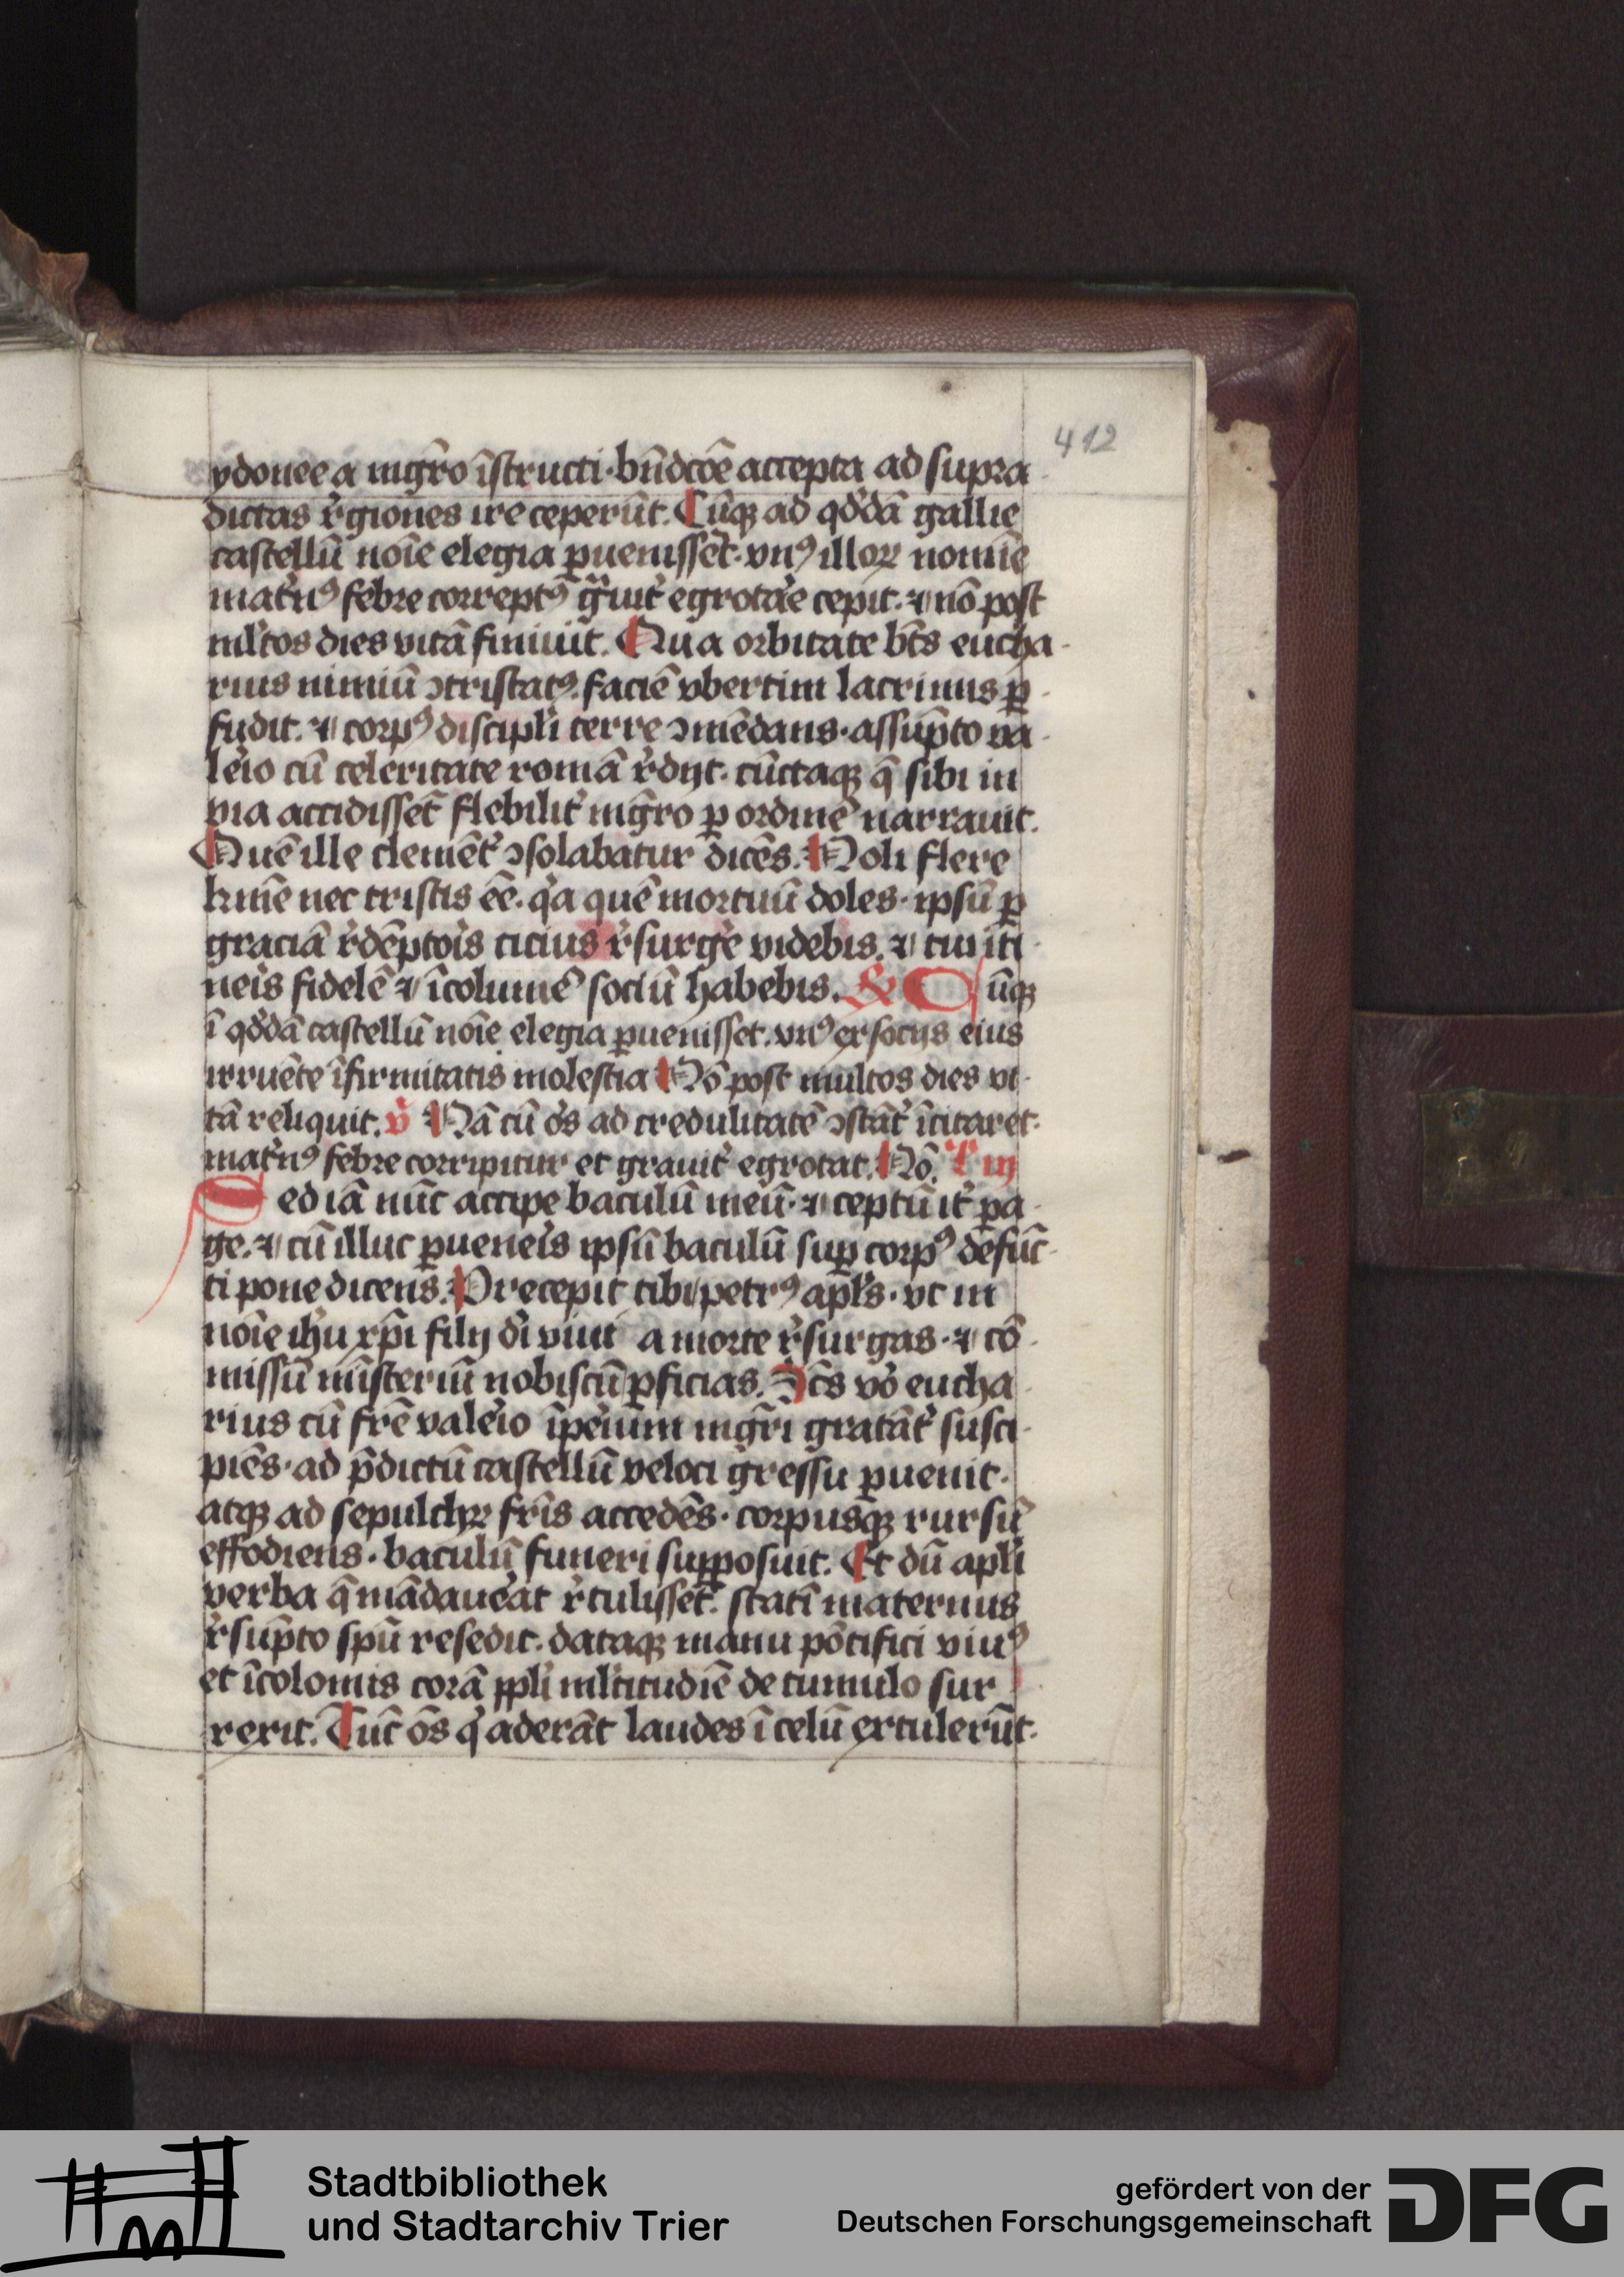 412
ydonee a mgr̄o īstructi· bn̄dcōe accepta ad supra
dictas r̓giones ire ceperūt. Cūqꝫ ad qd̓dā gallie
castellū noīe elegia ꝑuenissēt· vnꝰ illoꝝ nomīe
mat̓nꝰ febre correptꝰ gͣuit̓ egrota̓e cepit· ⁊ nō post
ml̓tos dies vitā finiuit. Qua orbitate bt̄s eucha
rius nimiū ꝯtristatꝰ faciē vbertim lacrimis ꝑ
fudit. ⁊ corpꝰ discipl̓i terre ꝯmēdans· assūpto va
le̓io cū celeritate romā r̓dijt· cūctaqꝫ q̄ sibi in
via accidissēt flebilit̓ mgr̄o ꝑ ordinē narrauit.
Quē ille clemēt̓ ꝯsolabatur dicēs. Noli flere
hmē nec tristis eē· qͥa quē mortuū doles· ipsū ꝑ
graciā r̓dēpto̓is cicius r̓surge̓ videbis. ⁊ tui iti
ne̓is fidelē ⁊ īcolumē sociū habebis. R Cūqꝫ
ī qd̓dā castellū noīe elegia ꝑuenisset· vnꝰ ex socijs eius
irruēte īfirmitatis molestia Nō post multos dies vi
tā reliquit. v̄ Nā cū oēs ad credulitatē ꝯstāt̓ īcitaret·
mat̓nꝰ febre corripitur et grauit̓ egrotat. Nō. L iij
Sed iā nūc accipe baculū meū· ⁊ ceptū it̓ ꝑa
ge· ⁊ cū illuc ꝑuene̓is ipsū baculū suꝑ corpꝰ defūc
ti pone dicens. Precepit tibi petrꝰ apl̓s· vt in
noīe ih̄u xp̄i filij dī viui a morte r̓surgas· ⁊ cō
missū mīsteriū nobiscū ꝑficias. Sc̄s vo̓ eucha
rius cū frē vale̓io īpe̓ium mgr̄i gratāt̓ susci
piēs· ad p̄dictū castellū veloci gressu ꝑuenit·
atqꝫ ad sepulchꝝ fr̄is accedēs· corpusqꝫ rursū
effodiens· baculū funeri suꝑposuit. Et dū apl̓i
verba q̄ mādaue̓at r̓tulisset· statī maternus
r̓sūpto spū resedit· dataqꝫ manu pōtifici viuꝰ
et īcolomis corā ppl̓i ml̓titudīe de tumulo sur
rexit. Tūc oēs qͥ aderāt laudes ī celū extulerūt·
Stadtbibliothek
und Stadtarchiv Trier
gefördert von der
Deutschen Forschungsgemeinschaft
DFG